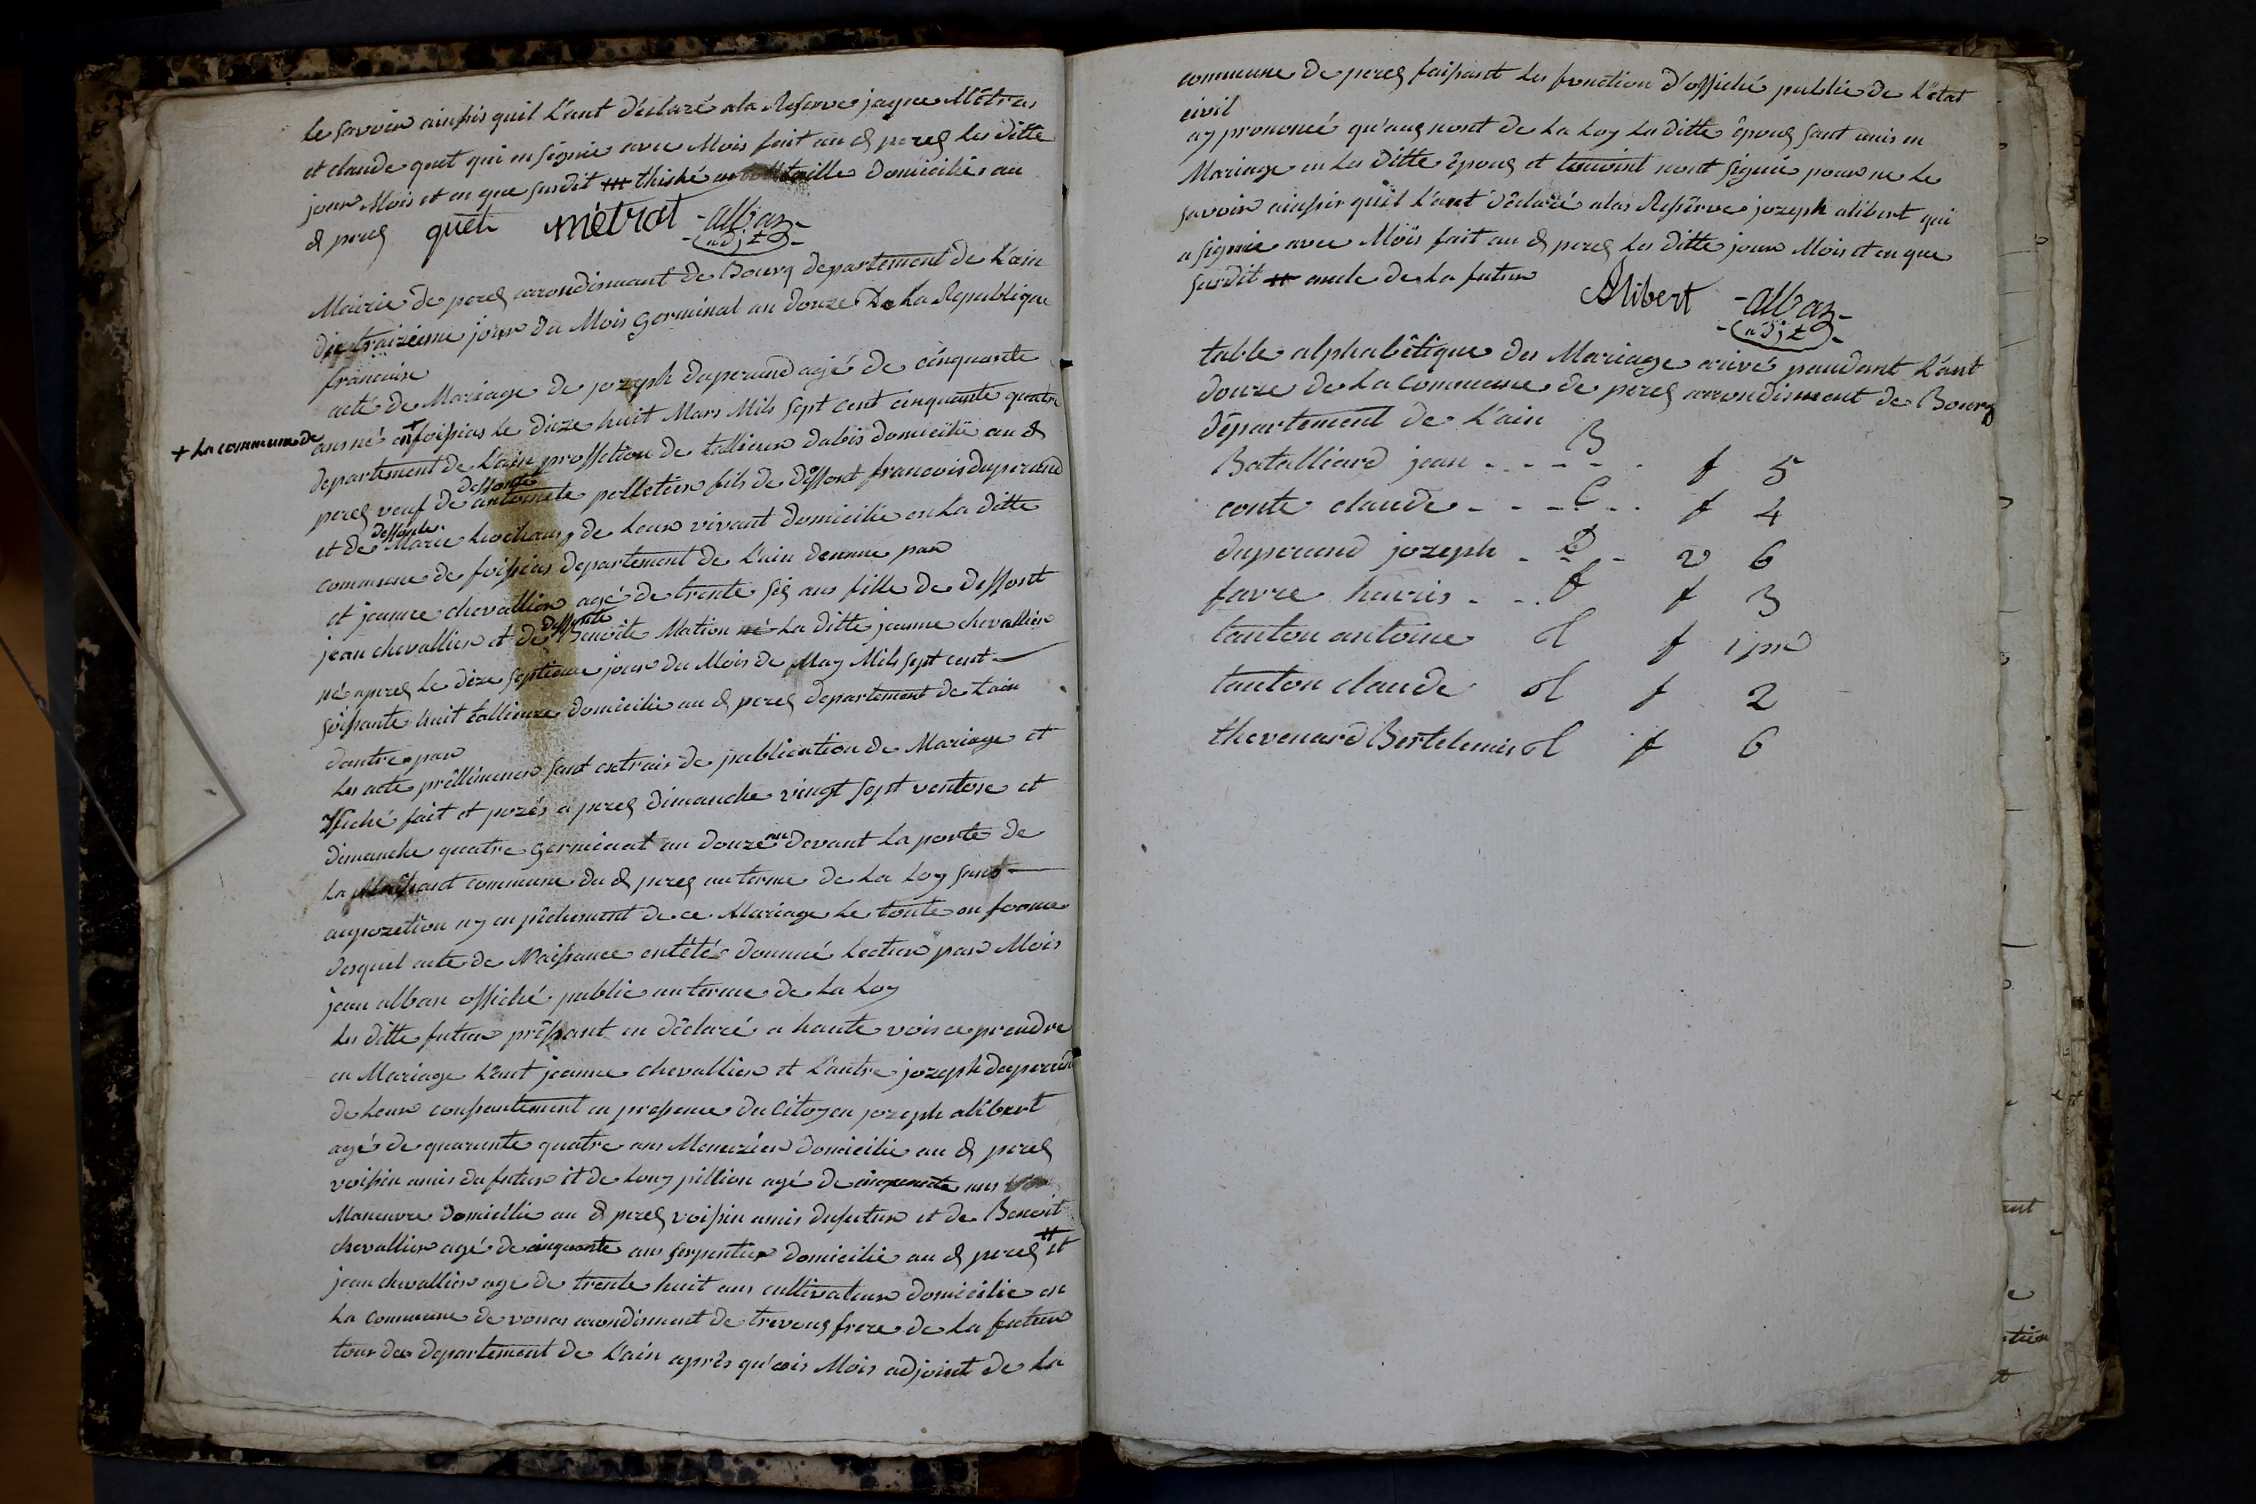 le savoir ainssis quil L'ant déclaré ala Reserve jaque Métras
et claude quet qui en signie avec Mois fait au d perex Les ditte
jour Mois et en que surdit thishé domicilie au
d perex quet métrat - alban -
- adjt -
Mairie de perex arrondismant de Bourg departement de L'ain
du traizième jour du Mois germinal an douze De La Republique
francaise
acte de Mariage de jozeph duperund agé de cinquante
+ La commune de
ans né en + foissias le dieze huit Mars Mils sept cent cinquante quatre
departement de L'ain proffetion de tallieur dabis domicilié au d
deffonte
perex veuf de antoinete pelletier fils de deffont francois duperund
deffonte
et de Marie Lochaux de Leur vivant domicilie en La ditte
commune de foissias departement de L'ain dunne par
et jeanne chevallier agé de trente six ans fille de deffont
deffonte
jean chevallier et de Benoite Mation La ditte jeanne chevallier
né a perex Le dixe septieme jour du Mois de May Mils sept cent
soissante huit tallieuze domicilie au d perex departement de Lain
dautre par
Les acte prélliminer sont extrais de publication de Mariage et
affiché fait et pozés a perex dimanche vingt sept ventose et
dimanche quatre germinal an douze au devant La porte de
La commune du d perex au terme de La Loy sans
aupozetion ny en pêchement de ce Mariage Le toute en forme
desquel acte de Naissance entété donné Lecture par Mois
jean alban offiché public au terme de La Loy
Les ditte futur préssant en déclaré a haute voix ce prendre
en Mariage L'unt jeanne chevallier et L'autre jozeph duperund
de Leur conssantement en pressence du Citoyen jozeph alibert
agé de quarante quatre ans Menuzier domicilie au d perex
voissin amis du futur et de Louy pillion agé de cinquante ans
Maneuvre domicilie au d perex voissin amis du futur et de Benoit
chevallier agé de cinquante ans serpentier domicilie au d perex # et
jean chevallier agé de trente huit ans cultivateur domicilie en
La commune de vonas arrondisment de trevoux frere de La future
tous du departement de L'ain après qu'ois Mois adjoint de La
commune de perex faissant Les fonction d'offiché public de L'état
civil
ay prononcé qu'aux nont de La Loy La ditte époux sant unis en
Mariage en Les ditte époux et temoint nont signié pour ne Le
savoir ainssir quil L'ant déclaré alas Ressêrve jozeph alibert qui
a signie avec Moïs fait au d perex Les ditte jour Mois et en que
surdit # oncle de La futur
Alibert - alban -
- adjt -
table alphabétique des Mariage arivé pandant L'ant
douze de La Commune de perex arrondisment de Bourg
département de L'ain
B
Batalliard jean - - - - - f 5
conte claude - - - C - - f 4
duperund jozeph - D - v 6
favre hauris - - f f 3
tanton antoine t f 1 pre
tanton claude t f 2
thevenard Bertelemis t f 6